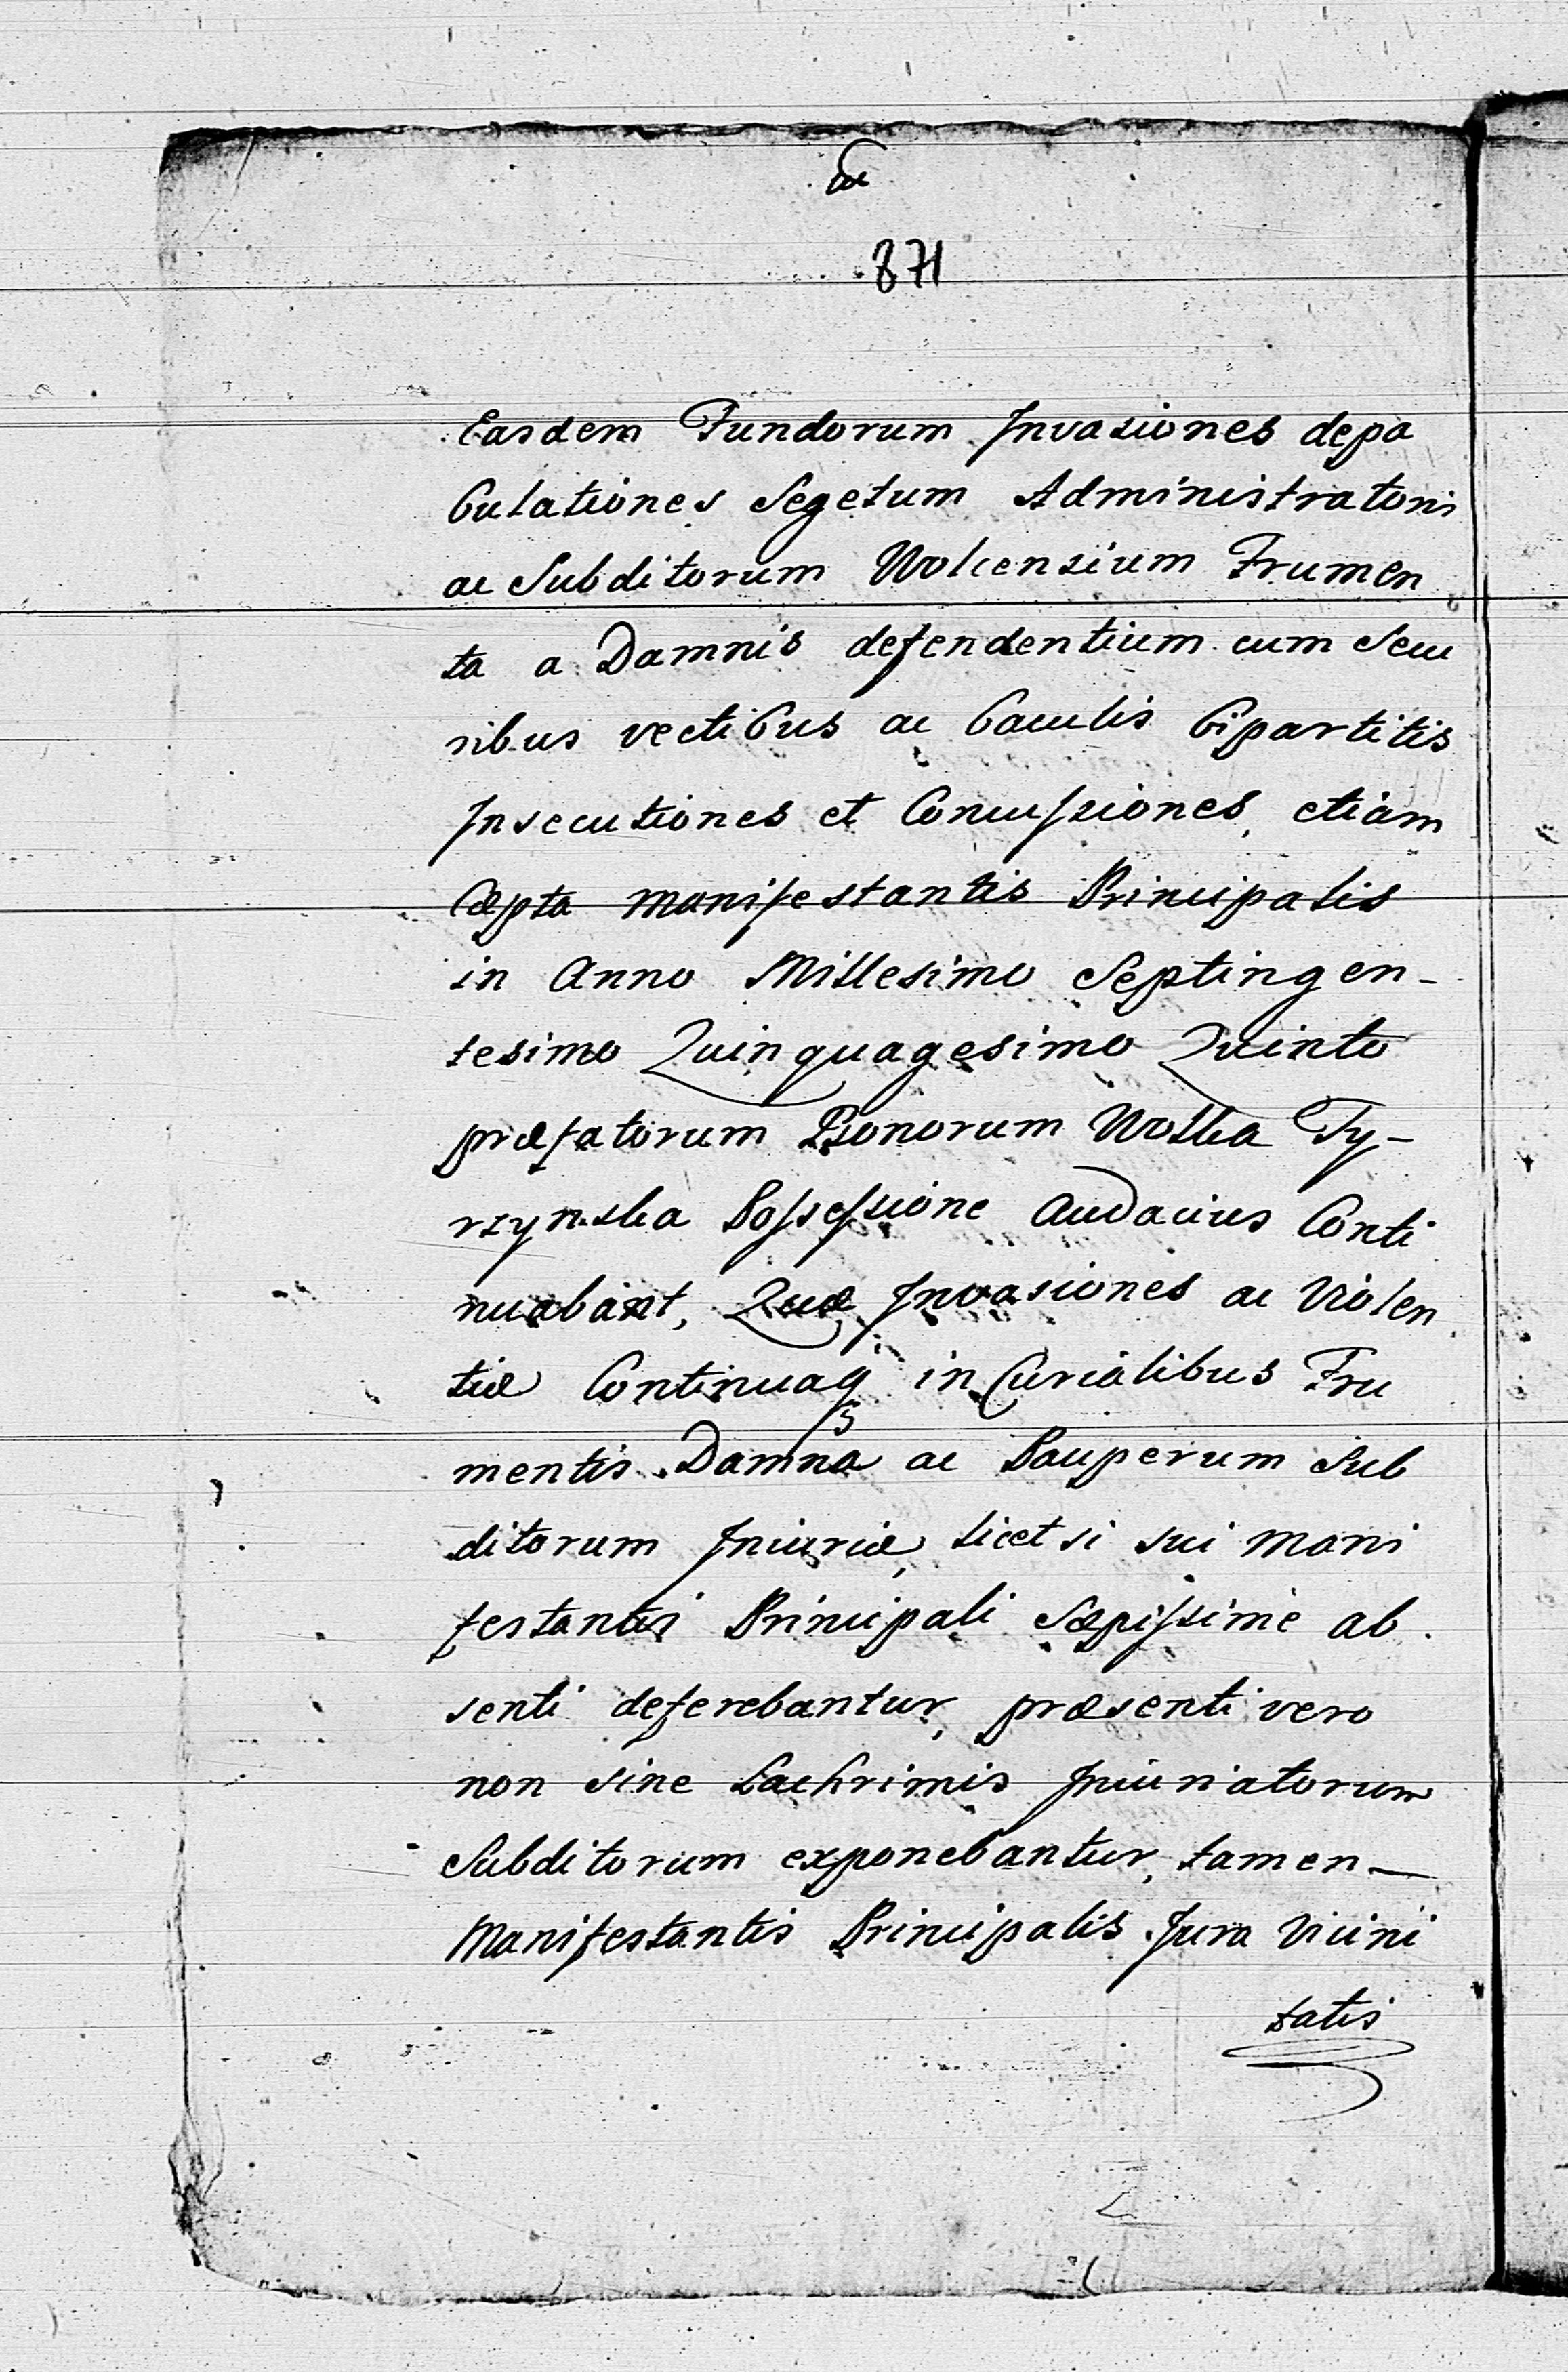 871
Easdem Fundorum Invasiones depa
bulationes Segetum Administratoris
ac Subditorum Wolcensium Frumen
ta a Damnis defendentium cum Secu
ribus vectibus ac baculis bipartitis
Insecutiones et Concussiones, etiam
Cæpta manifestantis Principalis
in Anno Millesimo Septingen-
tesimo Quinquagesimo Quinto
præfatorum Bonorum Wolka Ty-
rzynska Possessione Audacius Conti
nuabant, Quæ Invasiones ac Violen
tiæ Continuaq in Curialibus Fru
mentis Damna ac Pauperum Sub
ditorum Iniuriæ, licet si sui mani
festanti Principali Sæpissime ab
senti deferebantur, præsenti vero
non sine Lachrimis Iniuriatorum
Subditorum exponebantur, tamen—
Manifestantis Principalis Jura Vicini
tatis